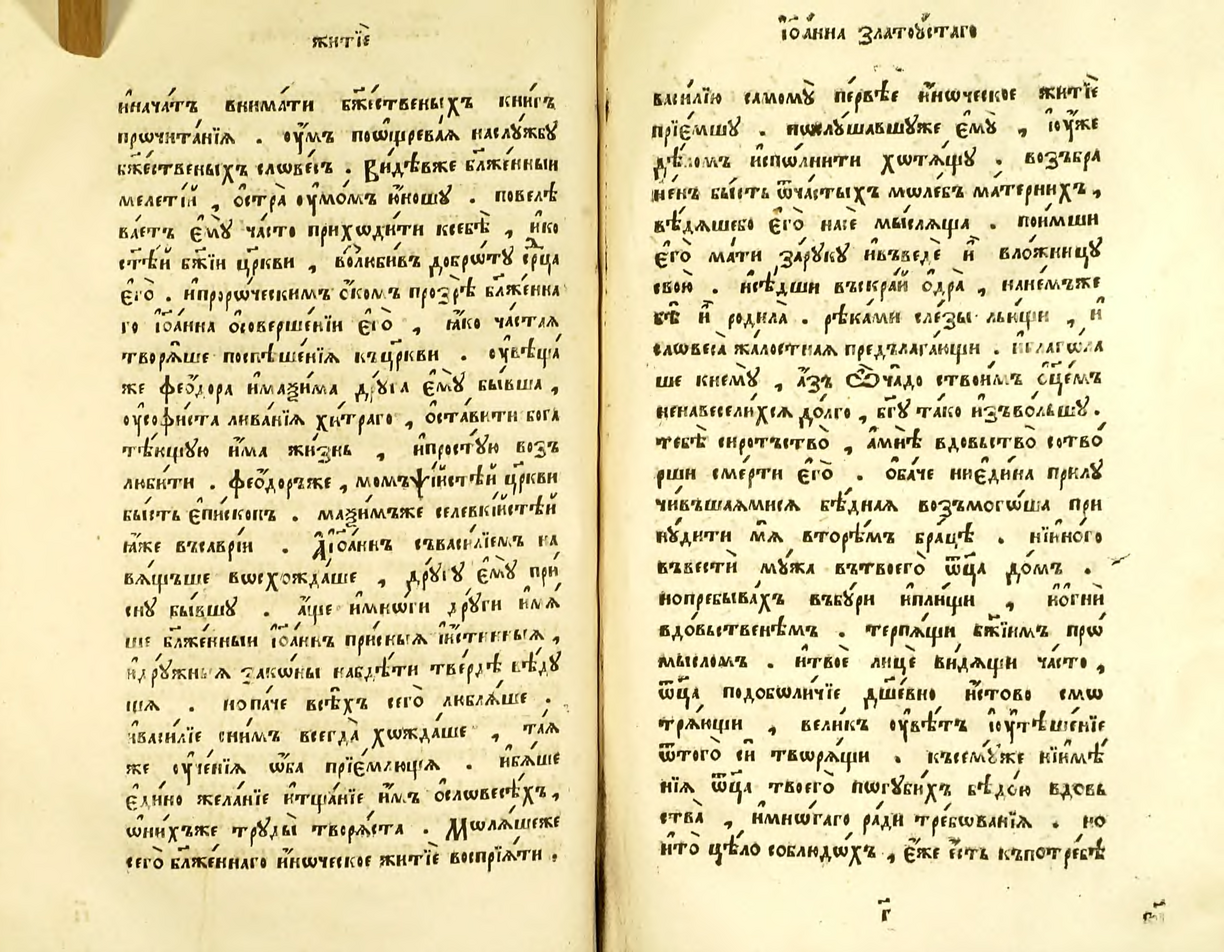 житїѐ
ина́чатъ внима́ти бж҃е́ственыхъ кни́гъ
прѡчита́нїѧ . оу҆́мъ поѡщрева́ѧ наслꙋ́жбꙋ
бж҃е́ственыхъ слѡве́съ . Ви́дѣвже бл҃же́нныи
меле́тїи , ѻ҆стра̀ оу҆мо́мъ ю҆́ношꙋ . повелѣ
ва́етъ є҆мꙋ̀ ча́сто прихѡди́ти ксебѣ̀ , ꙗ҆́ко
ст҃ѣ́й бж҃їи цр҃кви , во́люби́въ добрѡ́тꙋ ср҃ца
є҆гѡ̀ . ипроро́ческимъ ѻ҆́комъ прозрѣ̀ бл҃же́нна
го і҆ѡа́нна ѻ҆соверше́нїи є҆го̀ , ꙗ҆́ко ча́стаѧ
творѧ́ше поспѣше́нїѧ къцр҃кви . оу҆вѣща́
же феѻ҆́дора има҆ѯи́ма дрꙋ́га є҆мꙋ̀ бы́вша ,
оу҆софи́ста лива́нїѧ хи́траго , ѻ҆ста́вити бога
тѣ́ющꙋю и҆́ма жи́знь , ипро́стꙋю возъ
люби́ти . феѻ҆́доръже , момъѱі́йстѣй цр҃кви
бы́сть є҆пи́скопъ . маѯи́мъже селевкі́йстѣй
ꙗ҆́же въса́врїи . Аі҆ѡа́ннъ съваси́лїемъ на
вѧ́щьше вѡсхожда́ше , дрꙋ́гꙋ є҆мꙋ̀ при
снꙋ бы́вшꙋ . а҆́ще имнѡ́ги дрꙋ́ги имѧ́
ше бл҃же́нныи і҆ѡа́ннъ при́сныѧ и҆́стинныѧ ,
идрꙋ́жныѧ зако́ны набдѣ́ти тве́рдѣ вѣ́дꙋ
щѧ . нопа́че всѣ́хъ сего̀ люблѧ́ше .
иваси́лїе сни́мъ всегда̀ хѡжда́ше , та́ѧ
же оу҆че́нїѧ ѡ҆́ба прїе́млюща . ибѧ́ше
є҆ди́но жела́нїе итща́нїе и҆́мъ ѻ҆словесѣ́хъ ,
ѡ҆ни́хъже трꙋды̀ творѧ́ста . Мѡлѧ́шеже
сего̀ бл҃же́ннаго и҆́нѡческое житїѐ воспрїѧ́ти .
і҆ѡа́нна златоꙋ́стаго
васи́лїю самомꙋ̀ пе́рвѣе и҆́нѡческое житїѐ
прїе́мшꙋ . ипослꙋ́шавшꙋже є҆мꙋ̀ , іоу҆́же
дѣ́ломъ испѡ́лнити хѡтѧ́щꙋ . возъбра
не́нъ бы́сть ѿча́стыхъ мѡле́бъ ма́тернихъ ,
вѣ́дѧшебо є҆го̀ на́се мы́слѧща . пои́мши
є҆го̀ ма́ти за́рꙋкꙋ ивъведѐ и҆̀ вло́жницꙋ
свою̀ . исѣ́дши въскра́й ѻ҆дра̀ , нане́мъже
бѣ̀ и҆̀ роди́ла . рѣ́ками сле́зы лью́щи , и҆
слѡвеса̀ жа́лостнаѧ предълага́ющи . иглаго́ла
ше кнемꙋ̀ , а҆́зъ ѽча́до ство́имъ ѻ҆ц҃е́мъ
ненавесели́хсѧ до́лго , бг҃ꙋ та́ко и҆зъво́льшꙋ .
тебѣ̀ сиротъство̀ , а҆мѣ́нѣ вдовьство̀ сотво́
рши сме́рти є҆го̀ . ѻ҆ба́че ниє҆ди́на прилꙋ
чи́въшаѧмисѧ бѣ́днаѧ возъмого́ша при
нꙋ́дити мѧ̀ вторѣ́мъ бра́цѣ . ниино́го
въвестѝ мꙋ́жа вътвоего̀ ѿц҃а до́мъ .
нопребыва́хъ въбꙋ́ри ипли́щи , иогнѝ
вдовьстве́нѣмъ . терпѧ́щи бж҃їимъ прѡ́
мысломъ . итвоѐ лицѐ ви́дѧщи ча́сто ,
ѿц҃а подобѡли́чїе дш҃е́вно и҆́стово смѡ
трѧ́ющи , вели́къ оу҆вѣ́тъ іоу҆тѣше́нїе
ѿтого̀ сѝ твѡрѧ́щи . късемꙋ́же ниимѣ́
нїѧ ѿц҃а твоего̀ пѡгꙋби́хъ бѣдо́ю вдовь
ства̀ , имно́гаго ра́ди тре́бованїѧ . но
ито̀ цѣ́ло соблюдо́хъ , є҆́же є҆́сть къпотре́бѣ
г҃